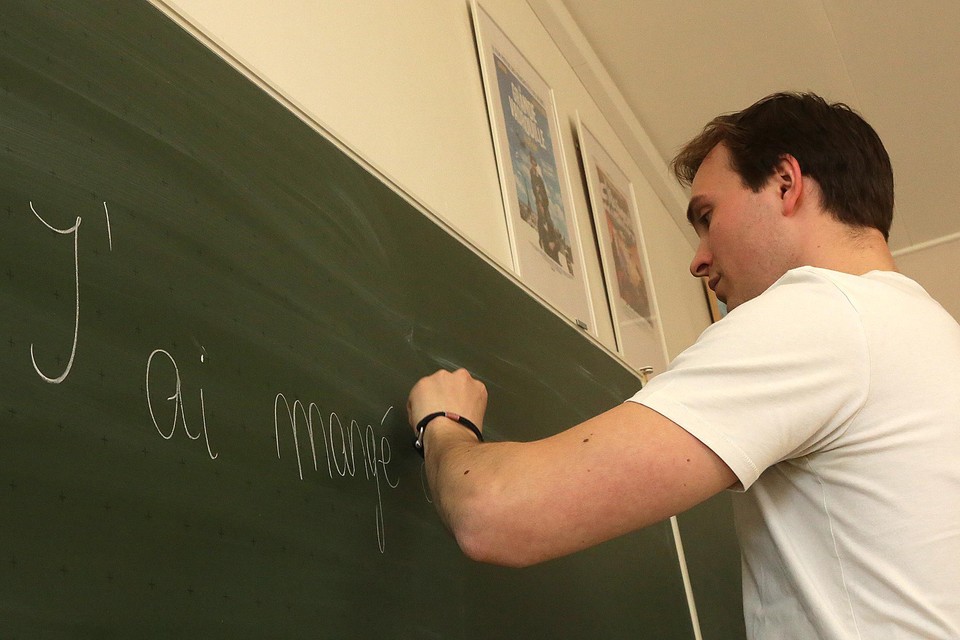 J'ai mangé